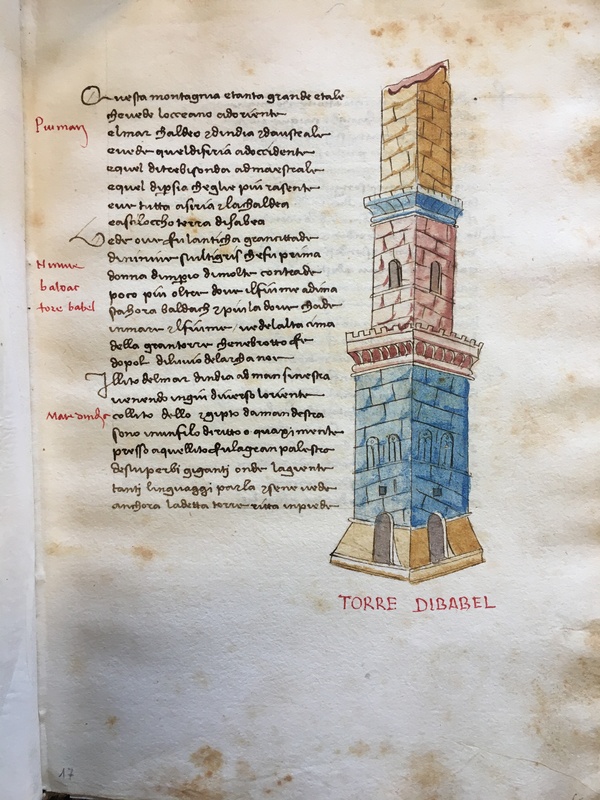 Questa montagnia etanta grande etale
chevede locceano adoriente
elmar chaldeo ꝛdindia ꝛdaustrale
evede queldisiria adoccidente
equel ditrebisonda admaestrale
equel dipsia cheglie piu rasente
eve tutta asiria ꝛlachaldea
easaloccho terra disabea
Vede ove fu lanticha grancittade
dininive sultigris chefu prima
donna dimpio dimolte contrade
poco piu oltre dove ilfiume adima
sahora baldach ꝛpiu la dove chade
inmare ꝛlfiume vedelalta cima
della grantorre chenebrotto fe
dopol diluvio delarcha noe
Illito delmar dindia ad man sinestra
venendo ingiu diverso loriente
collito dello ꝛgipto damandestra
sono inunfilo diritto o quaximente
presso aquellito fulagran palestra
desuperbi giganti onde lagiente
tanti linguaggi parla ꝛsene vede
anchora ladetta torre ritta inpiede
Ninive
baldac
tore babel
Mare dindia
TORRE DIBABEL
17